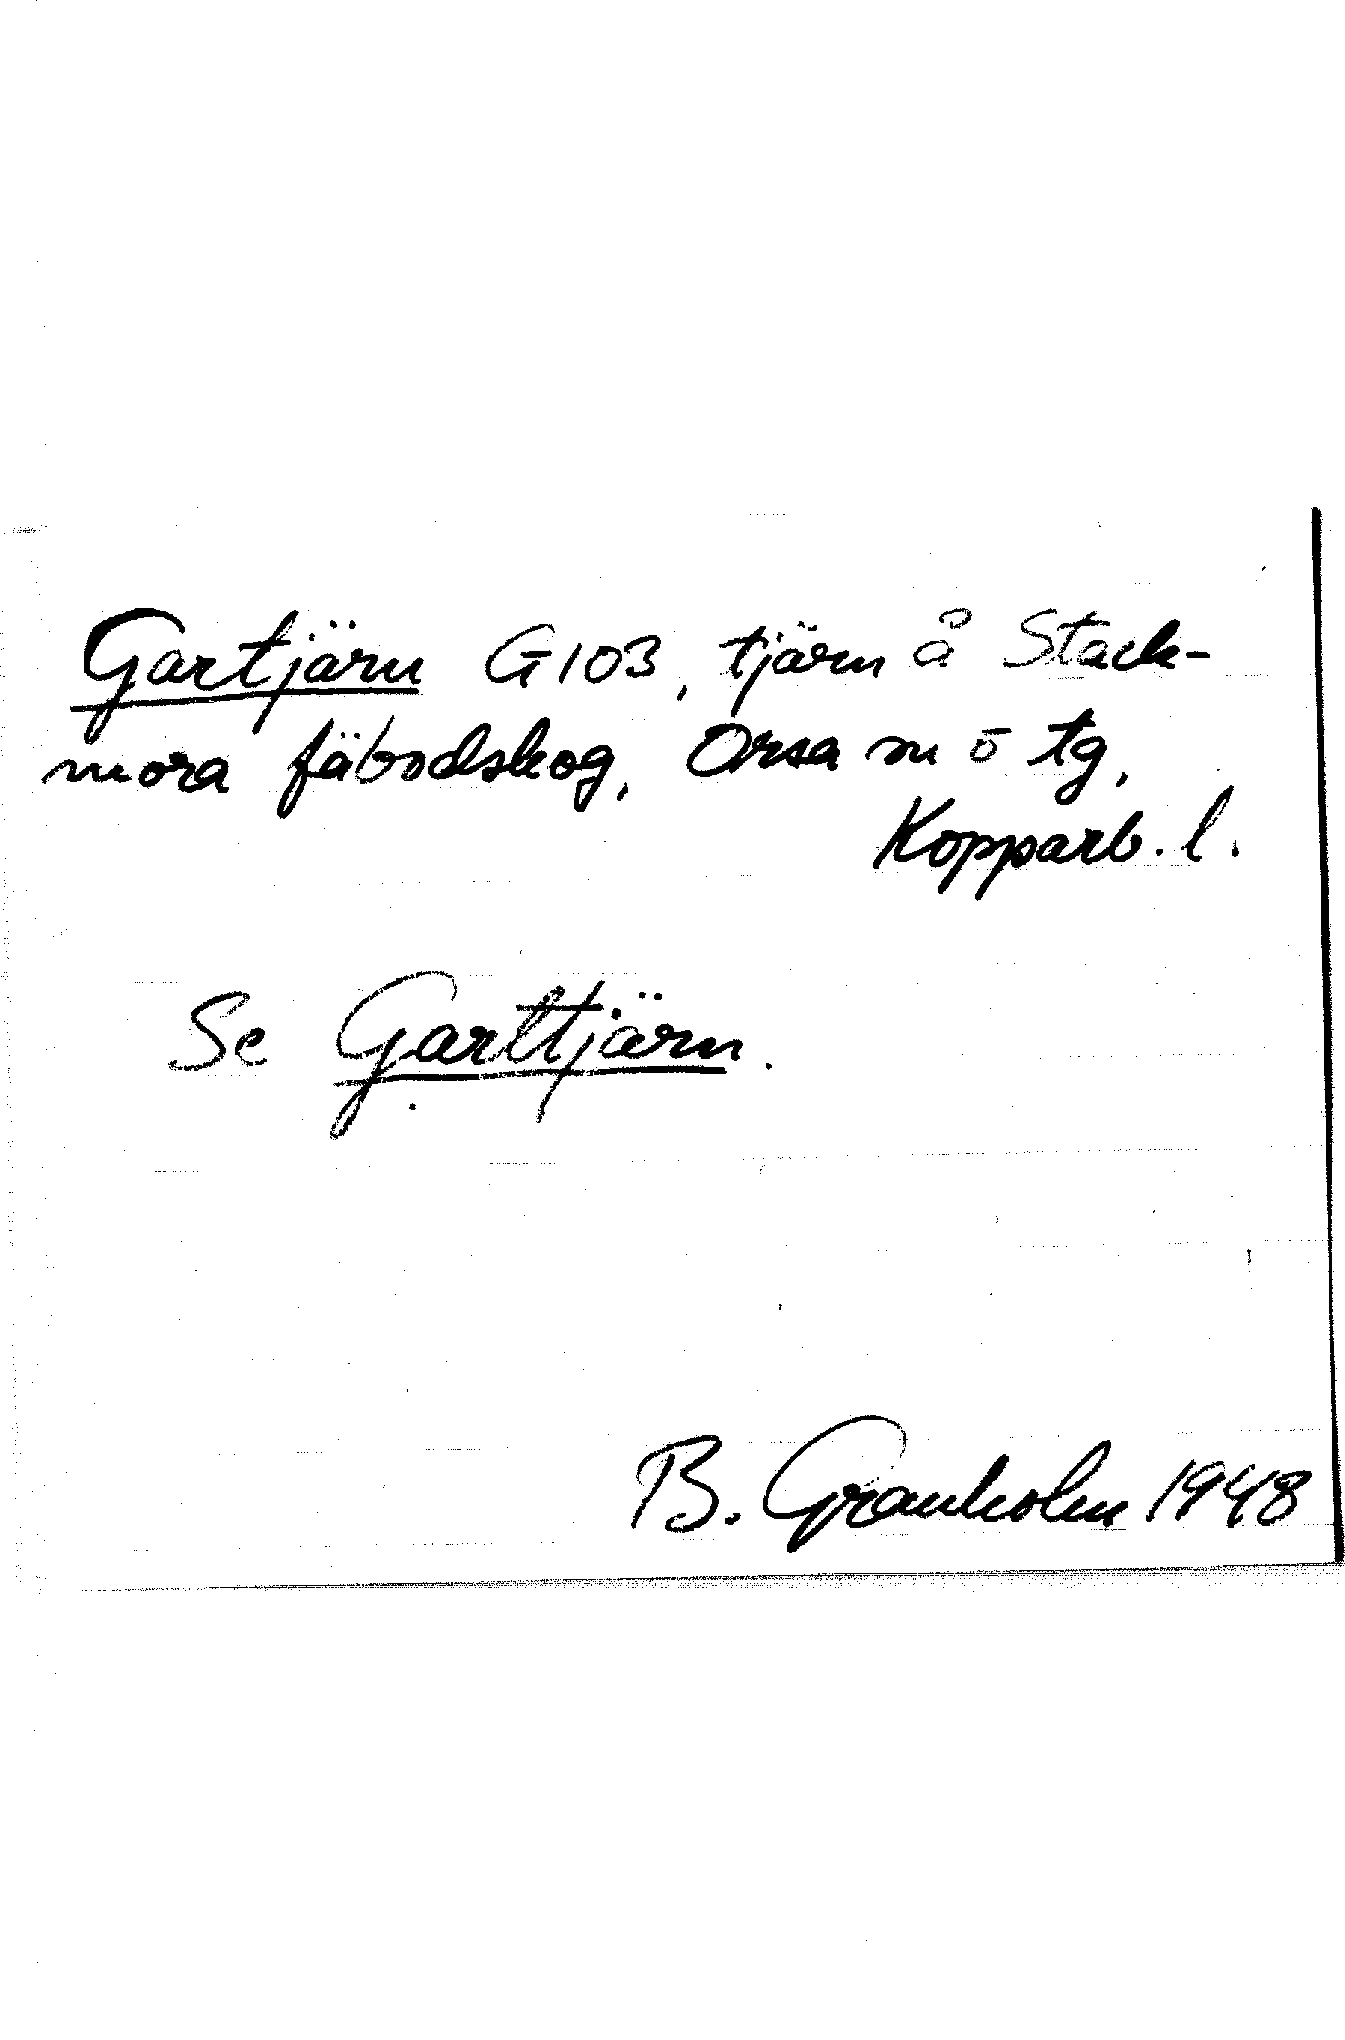 Gartjärn G103, tjärn å Stack-
mora fäbodskog, Orsa sn o tg,
Kopparb. l.
Se Garttjärn.
B. Granholm 1948